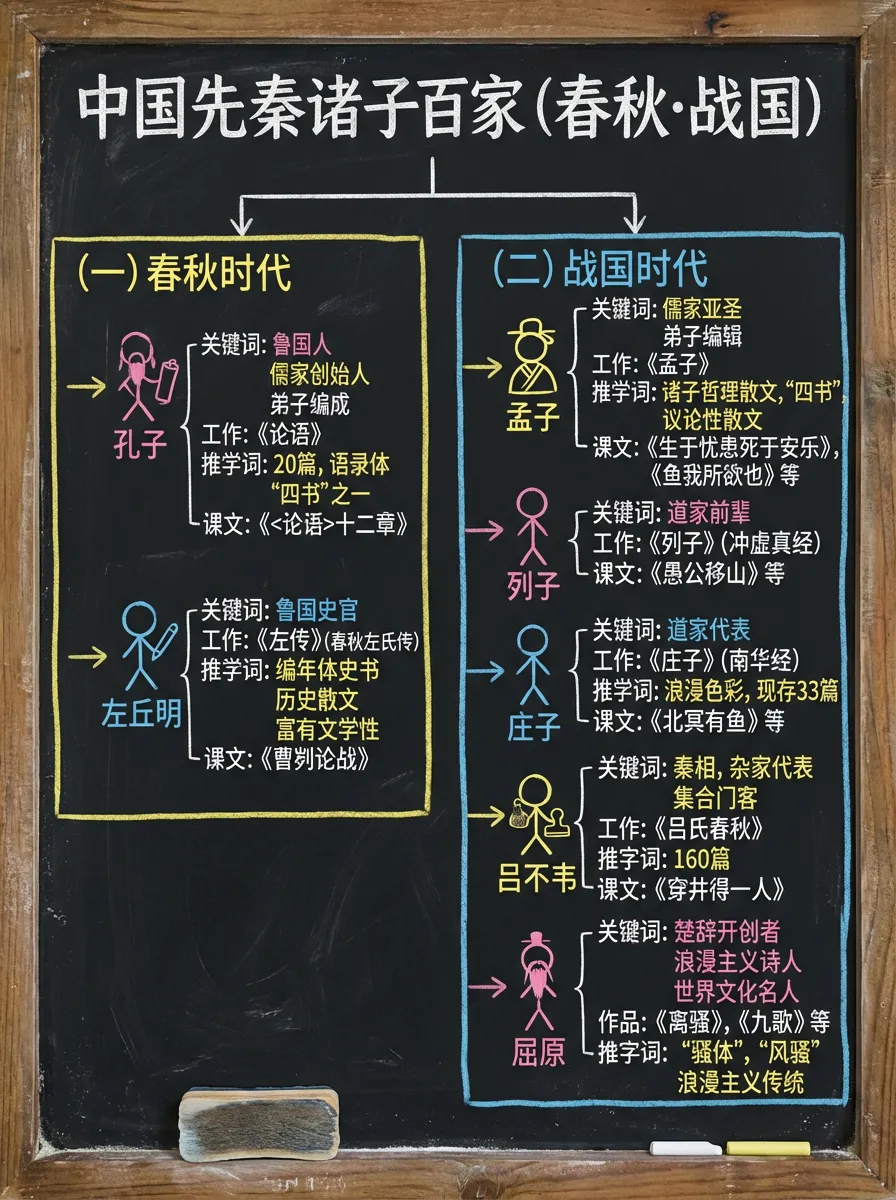 中国先秦诸子百家(春秋·战国)
(一)春秋时代
孔子
关键词: 鲁国人
儒家创始人
弟子编成
工作:《论语》
推学词: 20篇, 语录体
“四书”之一
课文:《<论语>十二章》
左丘明
关键词: 鲁国史官
工作:《左传》(春秋左氏传)
推学词: 编年体史书
历史散文
富有文学性
课文:《曹刿论战》
(二)战国时代
孟子
关键词: 儒家亚圣
弟子编辑
工作:《孟子》
推学词: 诸子哲理散文,“四书”,
议论性散文
课文:《生于忧患死于安乐》,
《鱼我所欲也》等
列子
关键词: 道家前辈
工作:《列子》(冲虚真经)
课文:《愚公移山》等
庄子
关键词: 道家代表
工作:《庄子》(南华经)
推学词: 浪漫色彩, 现存33篇
课文:《北冥有鱼》等
吕不韦
关键词: 秦相, 杂家代表
集合门客
工作:《吕氏春秋》
推字词: 160篇
课文:《穿井得一人》
屈原
关键词: 楚辞开创者
浪漫主义诗人
世界文化名人
作品:《离骚》,《九歌》等
推字词: “骚体”, “风骚”
浪漫主义传统